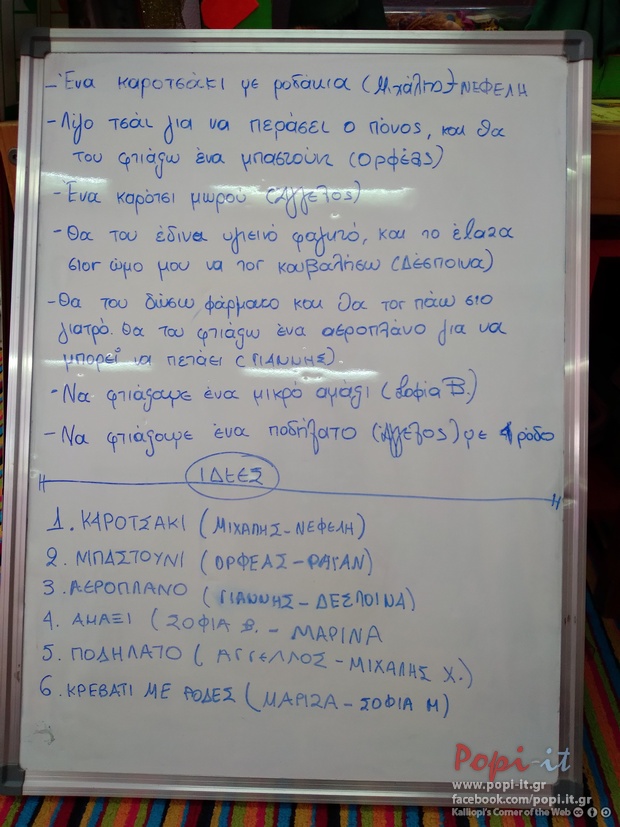 - Ένα καροτσάκι με ροδάκια (Μιχάλης)+ΝΕΦΕΛΗ
- Λίγο τσάι για να περάσει ο πόνος, και θα
του φτιάξω ένα μπαστούνι (Ορφέας)
- Ένα καρότσι μωρού (Άγγελος)
- Θα του έδινα υγιεινό φαγητό, και το έβαζα
στον ώμο μου να τον κουβαλήσω (Δέσποινα)
- Θα του δώσω φάρμακο και θα τον πάω στο
γιατρό. Θα του φτιάξω ένα αεροπλάνο για να
μπορεί να πετάει (ΓΙΑΝΝΗΣ)
- Να φτιάξουμε ένα μικρό αμάξι (Σοφία Β.)
- Να φτιάξουμε ένα ποδήλατο (Άγγελος) με 4 ρόδο
ΙΔΕΕΣ
1. ΚΑΡΟΤΣΑΚΙ (ΜΙΧΑΛΗΣ-ΝΕΦΕΛΗ)
2. ΜΠΑΣΤΟΥΝΙ (ΟΡΦΕΑΣ-ΡΑΓΑΝ)
3. ΑΕΡΟΠΛΑΝΟ (ΓΙΑΝΝΗΣ-ΔΕΣΠΟΙΝΑ)
4. ΑΜΑΞΙ (ΣΟΦΙΑ Β. - ΜΑΡΙΝΑ
5. ΠΟΔΗΛΑΤΟ (ΑΓΓΕΛΛΟΣ-ΜΙΧΑΛΗΣ Χ.)
6. ΚΡΕΒΑΤΙ ΜΕ ΡΟΔΕΣ (ΜΑΡΙΖΑ-ΣΟΦΙΑ Μ)
Popi-it
www.popi-it.gr
facebook.com/popi.it.gr
Kalliopi's Corner of the Web